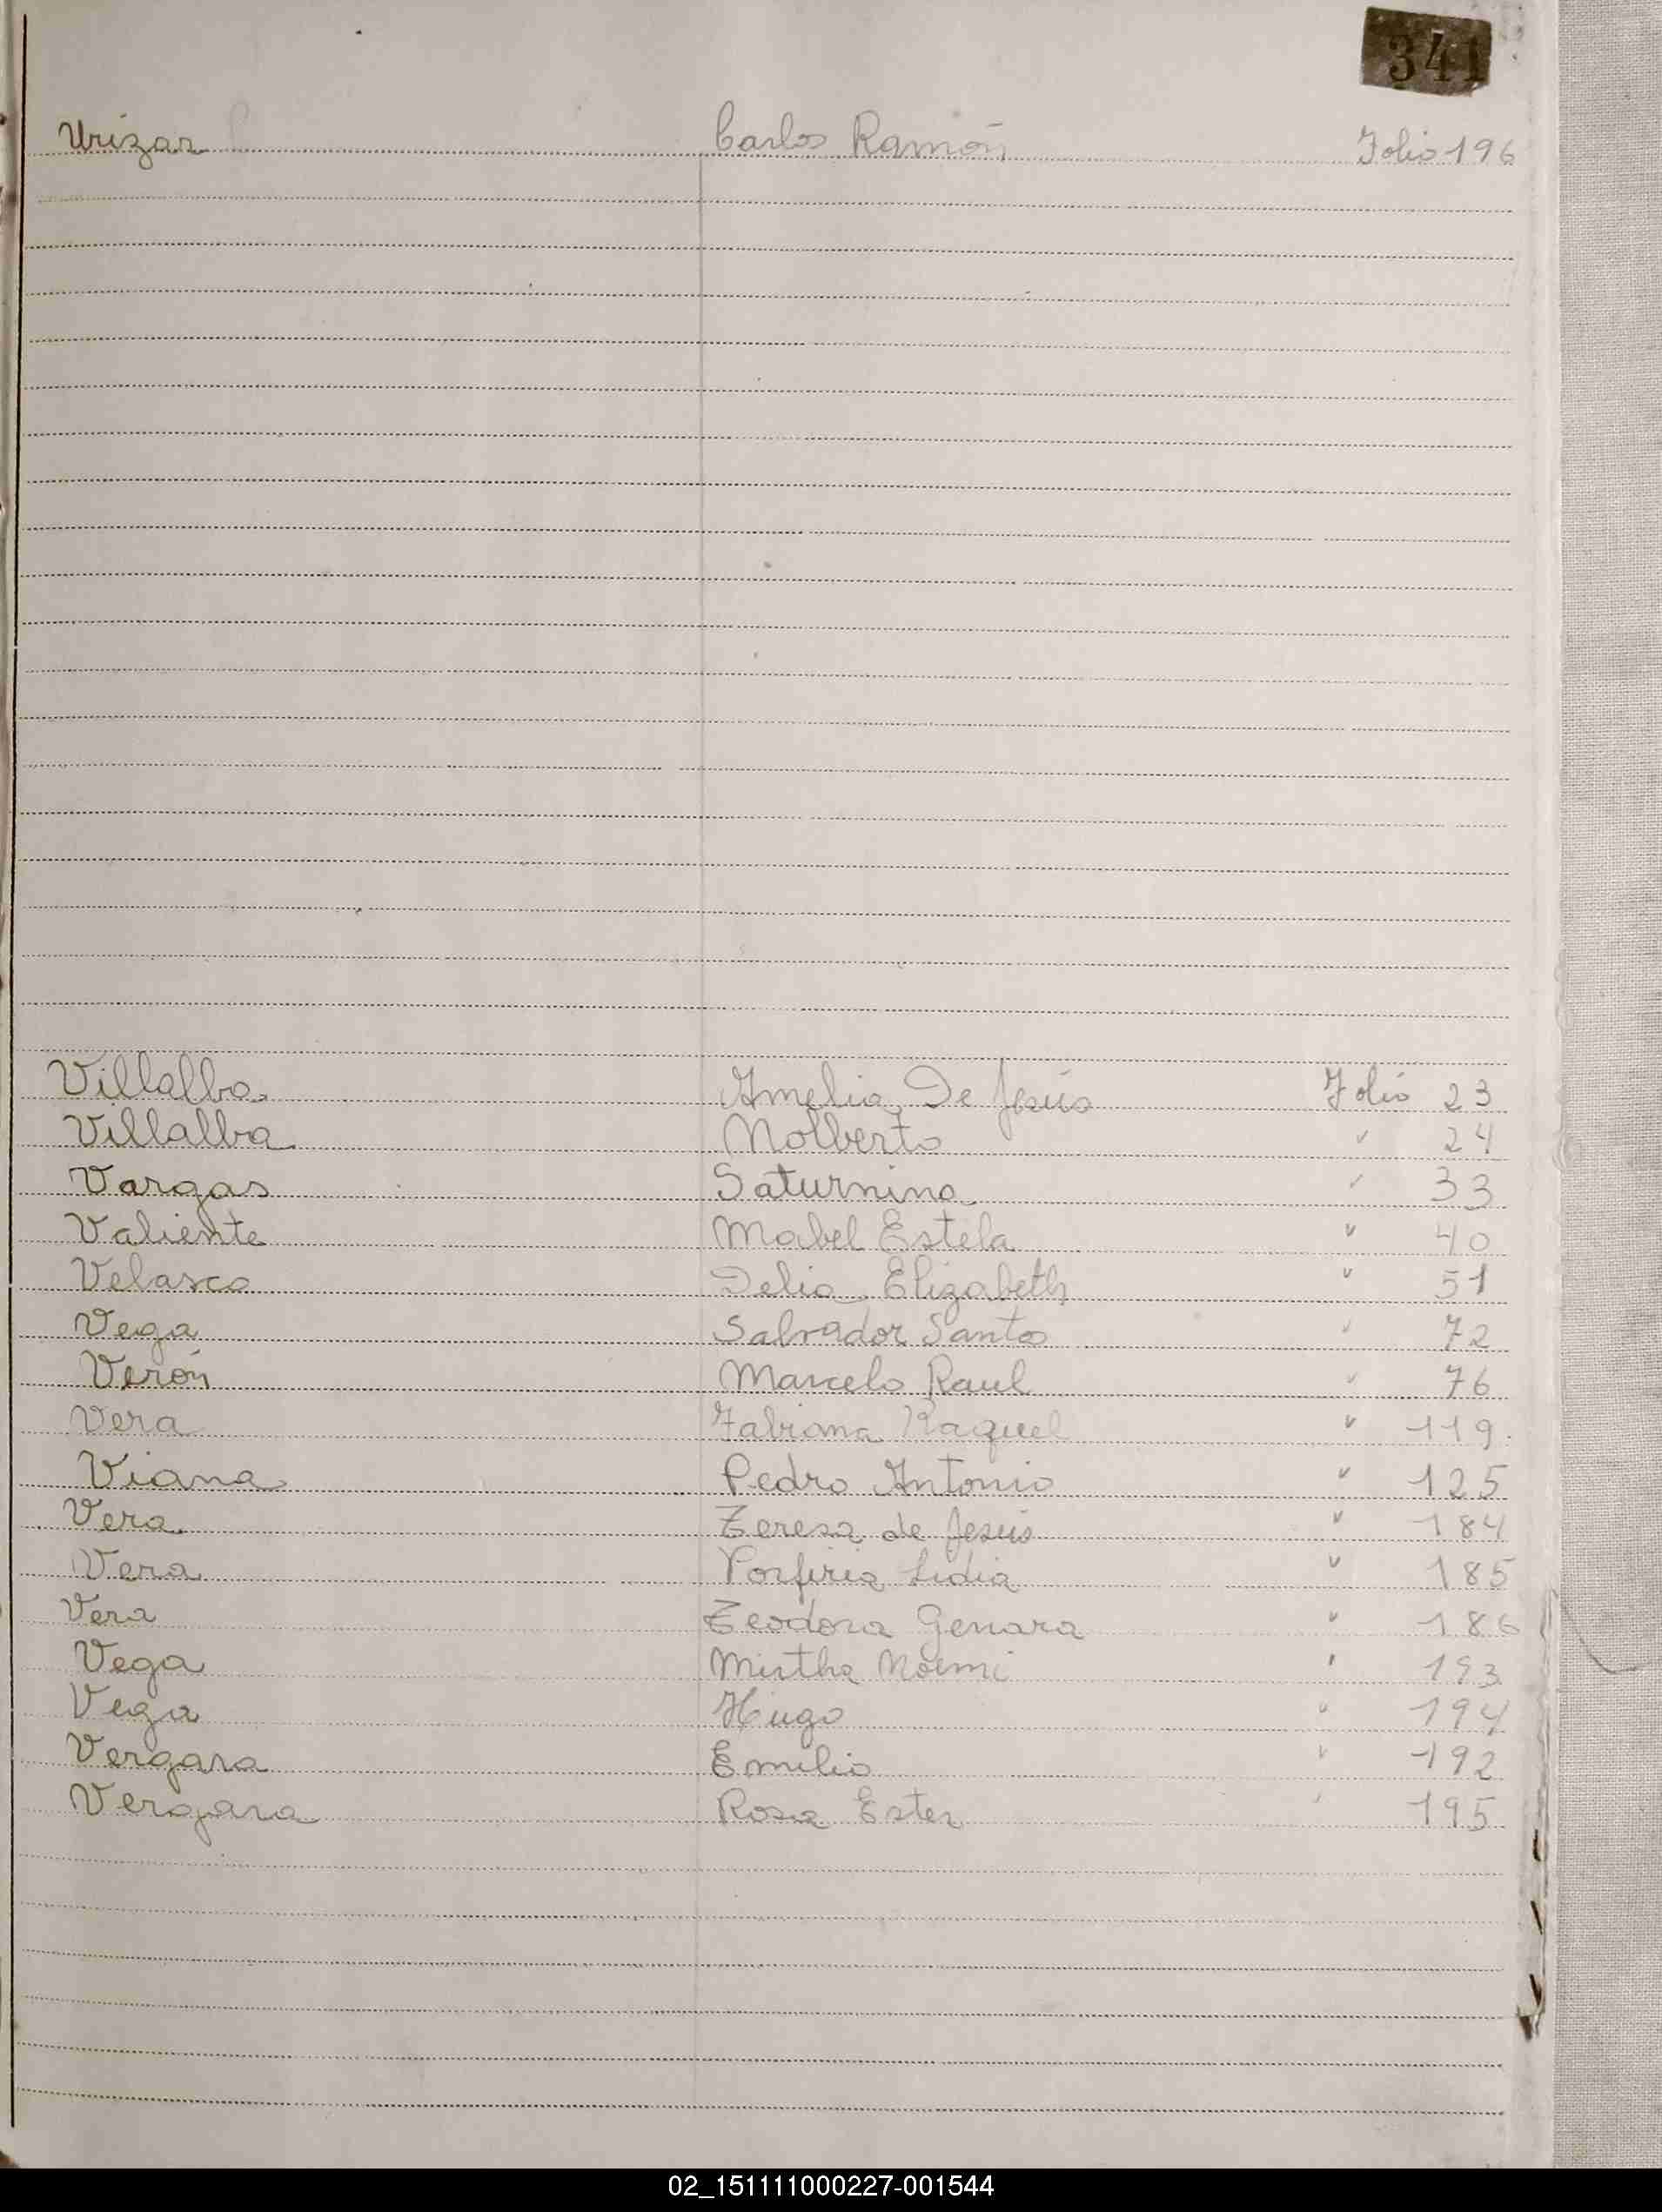 341
Urizar Carlos Ramón Folio 196
Villalba Amelia De Jesús Folio 23
Villalba Nolberto " 24
Vargas Saturnino " 33
Valiente Mabel Estela " 40
Velasco Delia Elizabeth " 51
Vega Salvador Santos " 72
Verón Marcelo Raul " 76
Vera Fabiana Raquel " 119
Viana Pedro Antonio " 125
Vera Teresa de Jesús " 184
Vera Porfiria Lidia " 185
Vera Teodora Genara " 186
Vega Mirtha Noemi " 193
Vega Hugo " 194
Vergara Emilio " 192
Vergara Rosa Ester " 195
02_151111000227-001544